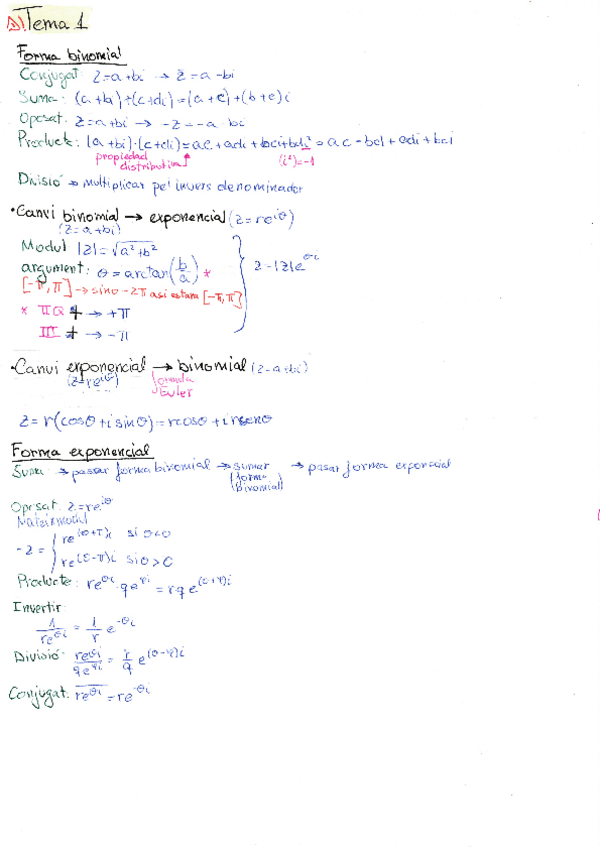 Tema 1
Forma binomial
Conjugat: z=a+bi → z̄=a-bi
Suma: (a+bi)+(c+di)=(a+c)+(b+e)i
Oposat: z=a+bi → -z=-a-bi
Producte: (a+bi)·(c+di)=ac+adi+bci+bdi²=ac-bd+adi+bci
propiedad distributiva (i²)=-1
Divisió → multiplicar pel invers denominador
·Canvi binomial → exponencial (z=re^{iθ})
(z=a+bi)
Modul |z|=√(a²+b²)
argument: θ=arctan(b/a) *
z=|z|e^{θi}
[-π,π] → sino -2π asi estara [-π,π]
* IIQ → +π
III → -π
·Canvi exponencial → binomial (z=a+bi)
(z=re^{iθ}) formula Euler
z=r(cosθ+i sinθ)=rcosθ+irsenθ
Forma exponencial
Suma: → passar forma binomial → sumar → passar forma exponencial
(forma binomial)
Oposat: z=re^{iθ}
-z= { re^{(θ+π)i} si θ<0
re^{(θ-π)i} si θ>0
Producte: re^{θi}·qe^{φi}=rqe^{(θ+φ)i}
Invertir:
1/re^{θi} = 1/r e^{-θi}
Divisió: re^{θi}/qe^{φi} = r/q e^{(θ-φ)i}
Conjugat: \overline{re^{θi}}=re^{-θi}